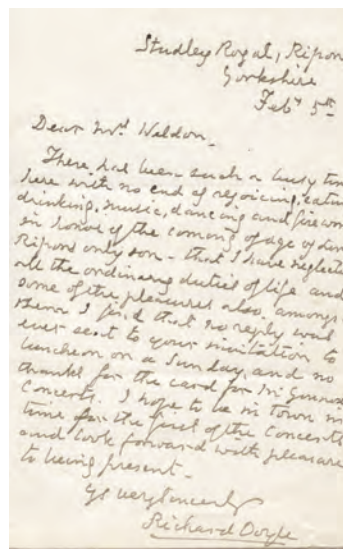 Studley Royal, Ripon
Yorkshire
Feby 5th
Dear Mrs Weldon_
There has been such a busy tim
here with no end of rejoicing, eatin
drinking, music, dancing and firewor
in honor of the coming of age of Lord
Ripons only son_ that I have neglecte
all the ordinary duties of life and
some of the pleasures also, amongst
them I find that no reply was
ever sent to your invitation to
luncheon on a Sunday, and no
thanks for the card for Mr Gounod
Concerts. I hope to be in town in
time for the first of the Concerts
and look forward with pleasure
to being present_
Yrs very sincerely
Richard Doyle